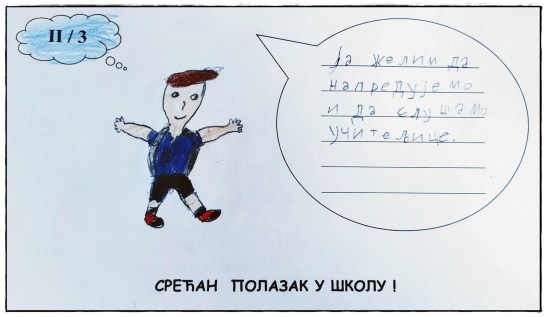 II / 3
ја желим да
напредујемо
и да слушамо
учитељице.
СРЕЋАН ПОЛАЗАК У ШКОЛУ !